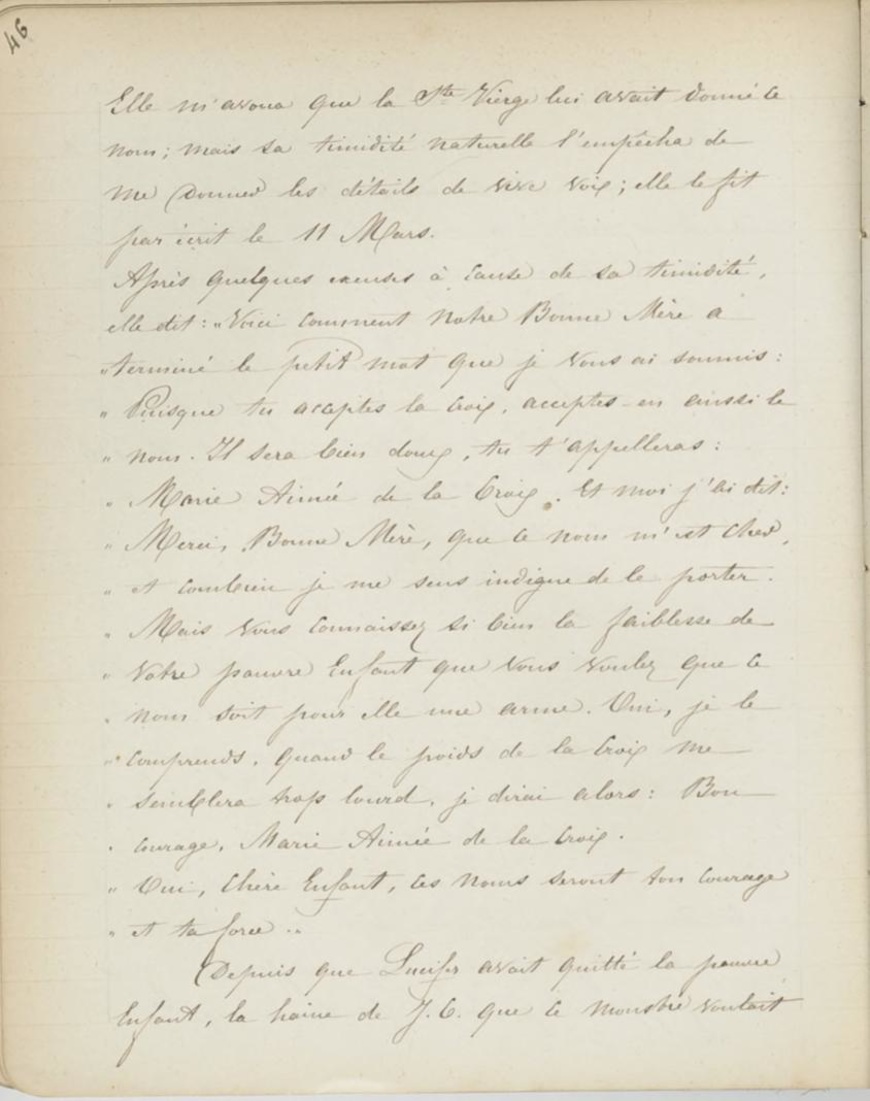 46
Elle m'avoua que la Ste Vierge lui avait donné ce
nom; mais sa timidité naturelle l'empêcha de
me donner les détails de vive voix; elle le fit
par écrit le 11 Mars.
Après quelques excuses à cause de sa timidité,
elle dit: "Voici comment Notre Bonne Mère a
"terminé le petit mot que je vous ai soumis:
" Puisque tu acceptes la Croix, acceptes-en aussi le
" nom. Il sera bien doux, tu t'appelleras:
" Marie Aimée de la Croix. Et moi j'ai dit:
" Merci, Bonne Mère, que ce nom m'est cher,
" et combien je me sens indigne de le porter.
" Mais vous connaissez si bien la faiblesse de
" votre pauvre Enfant que vous voulez que ce
" nom soit pour elle une arme. Oui, je le
" comprends, quand le poids de la Croix me
" semblera trop lourd, je dirai alors: Bon
" courage, Marie Aimée de la Croix.
" Oui, chère Enfant, ces noms seront ton courage
" et ta force."
Depuis que Lucifer avait quitté la pauvre
Enfant, la haine de J.C. que ce monstre voulait